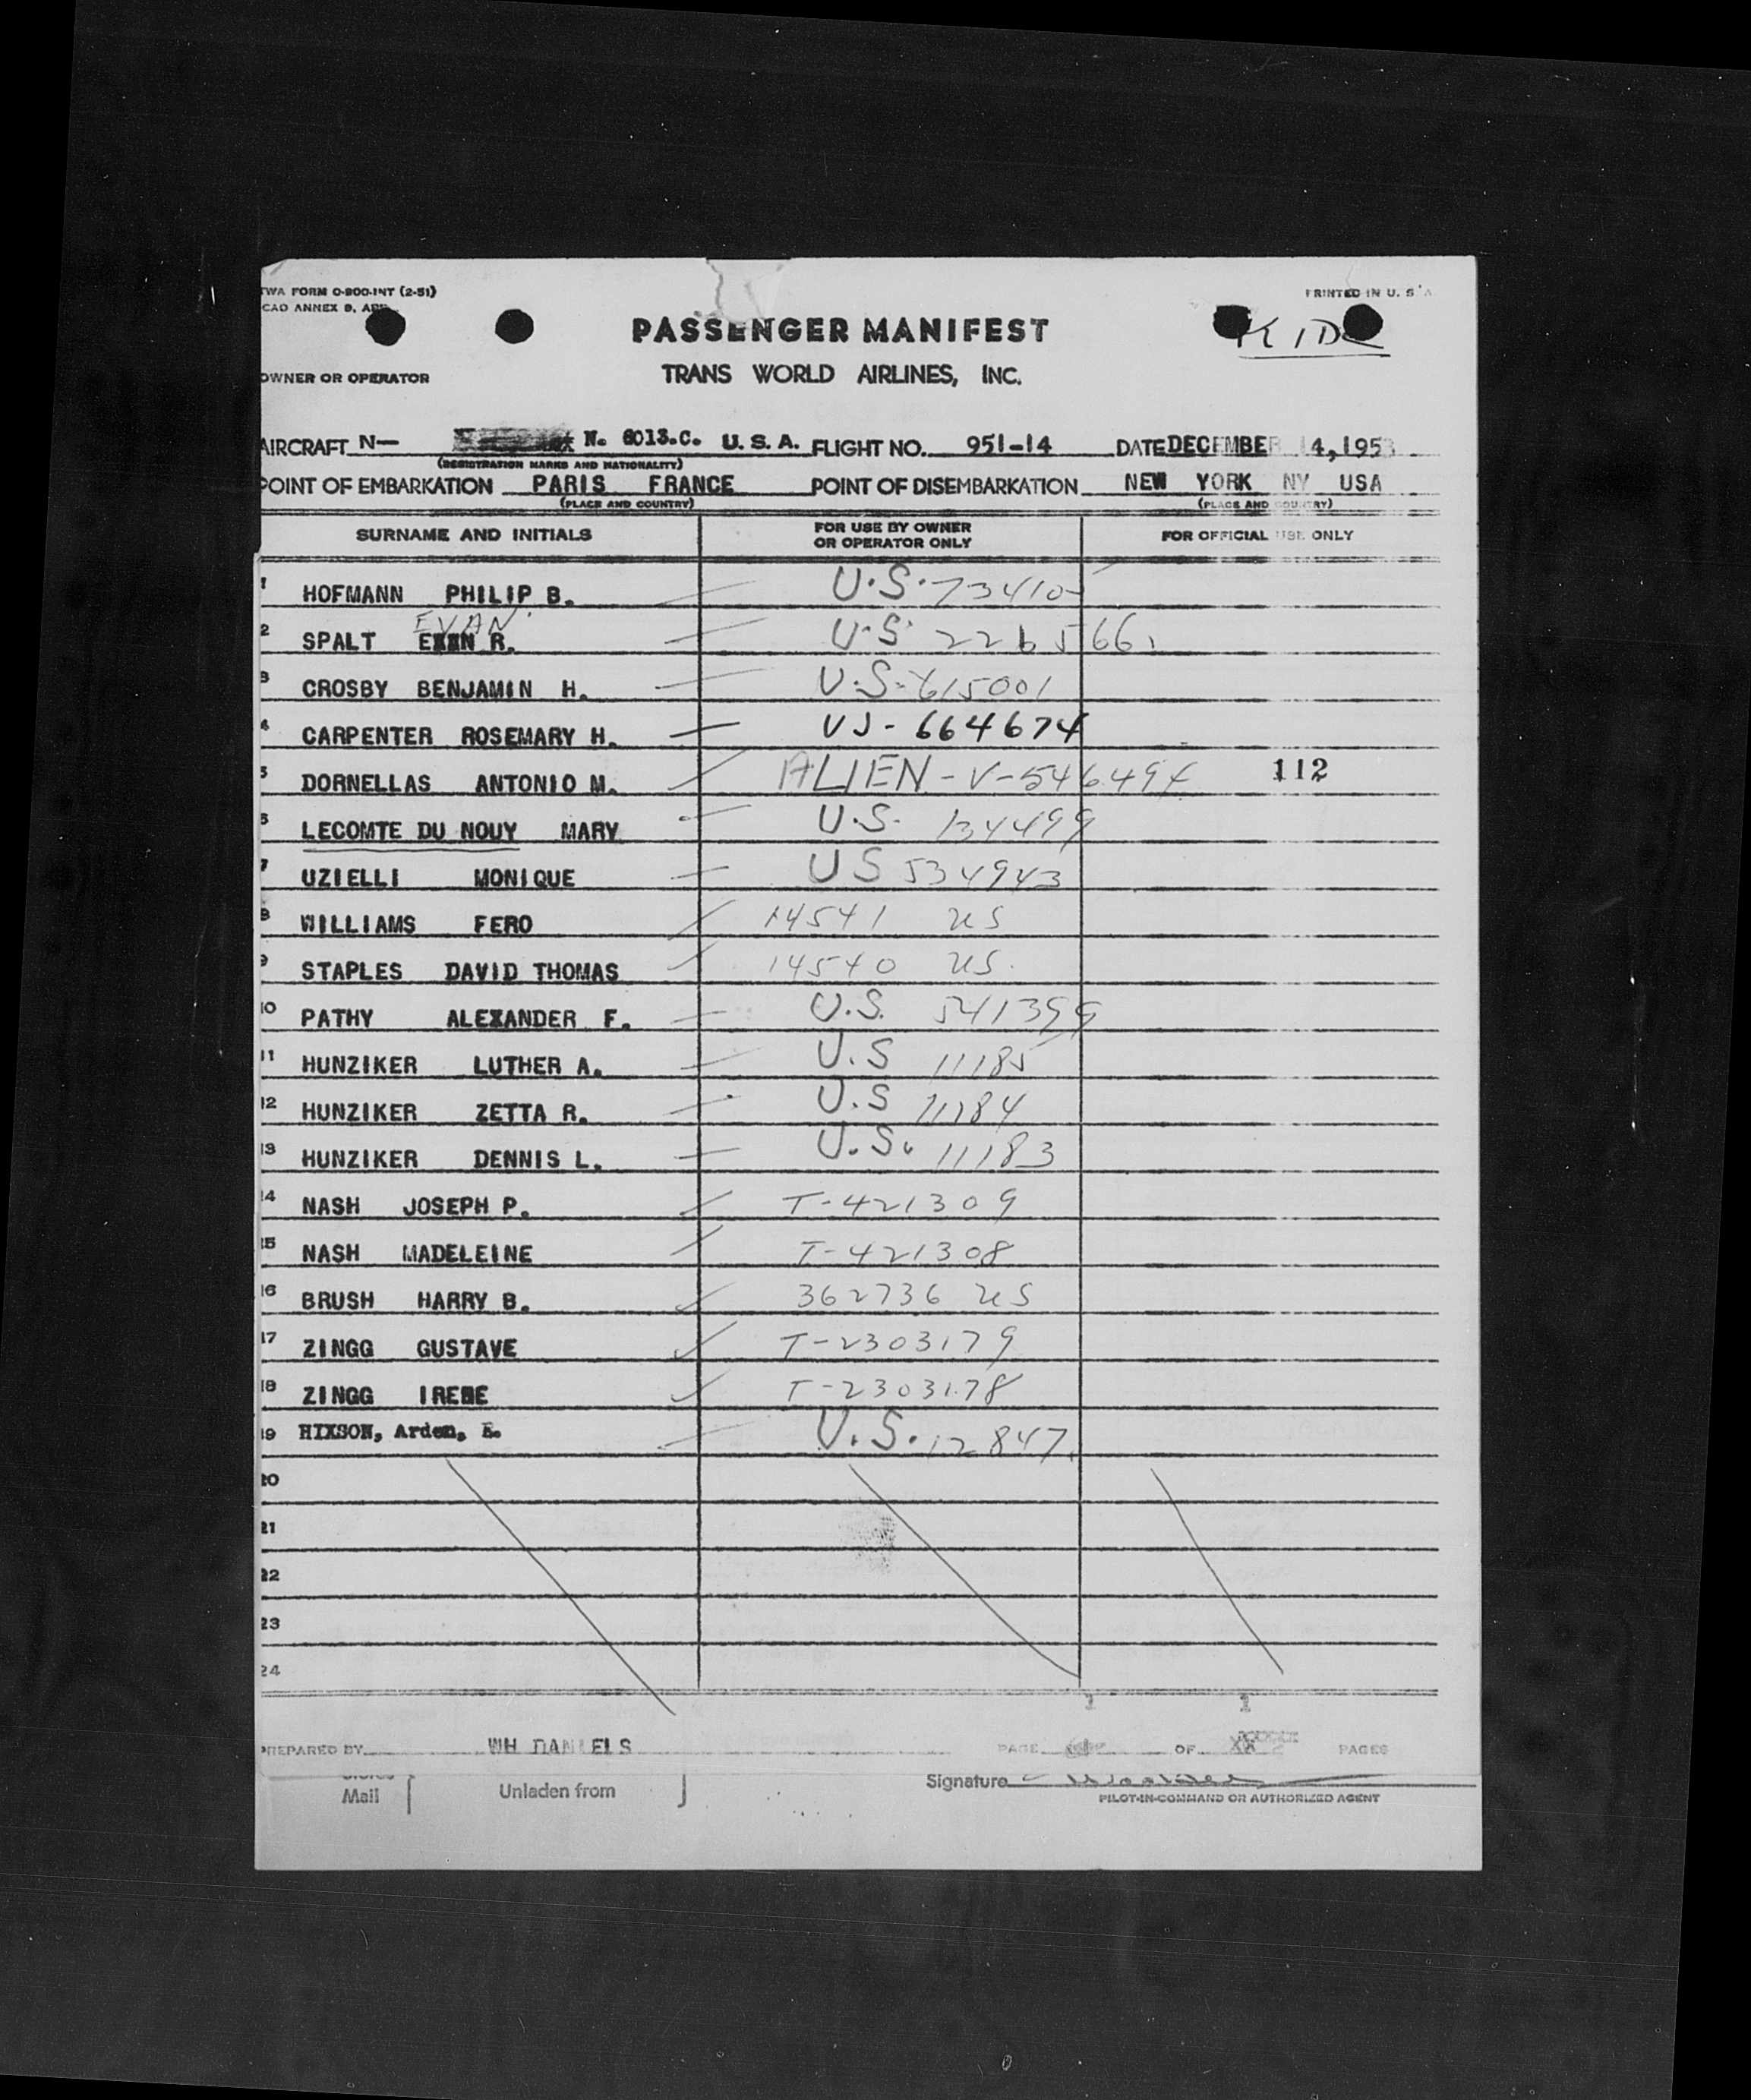 TWA FORM O-900-INT (2-51)
PRINTED IN U. S A
CAO ANNEX 9,
PASSENGER MANIFEST
OWNER OR OPERATOR
TRANS WORLD AIRLINES, INC.
AIRCRAFT N— N. 6013.C. U. S. A. FLIGHT NO. 951-14 DATE DECEMBER 14, 1953
(REGISTRATION MARKS AND NATIONALITY)
POINT OF EMBARKATION PARIS FRANCE POINT OF DISEMBARKATION NEW YORK NY USA
(PLACE AND COUNTRY) (PLACE AND COUNTRY)
SURNAME AND INITIALS FOR USE BY OWNER OR OPERATOR ONLY FOR OFFICIAL USE ONLY
1 HOFMANN PHILIP B. U.S. 73410
EVAN
2 SPALT R. U.S. 2265661
3 CROSBY BENJAMIN H. U.S. 615001
4 CARPENTER ROSEMARY H. US-664674
5 DORNELLAS ANTONIO M. ALIEN-V-546494 112
6 LECOMTE DU NOUY MARY U.S. 134499
7 UZIELLI MONIQUE US 534943
8 WILLIAMS FERO 14541 US
9 STAPLES DAVID THOMAS 14540 US.
10 PATHY ALEXANDER F. U.S. 541399
11 HUNZIKER LUTHER A. U.S 11185
12 HUNZIKER ZETTA R. U.S 11184
13 HUNZIKER DENNIS L. U.S. 11183
14 NASH JOSEPH P. T-421309
15 NASH MADELEINE T-421308
16 BRUSH HARRY B. 362736 US
17 ZINGG GUSTAVE T-2303179
18 ZINGG IRENE T-2303178
19 HIXSON, Arden, E. U.S. 12847
20
21
22
23
24
1 1
PREPARED BY WH DANIELS PAGE OF PAGES
Mail Unladen from Signature
PILOT-IN-COMMAND OR AUTHORIZED AGENT